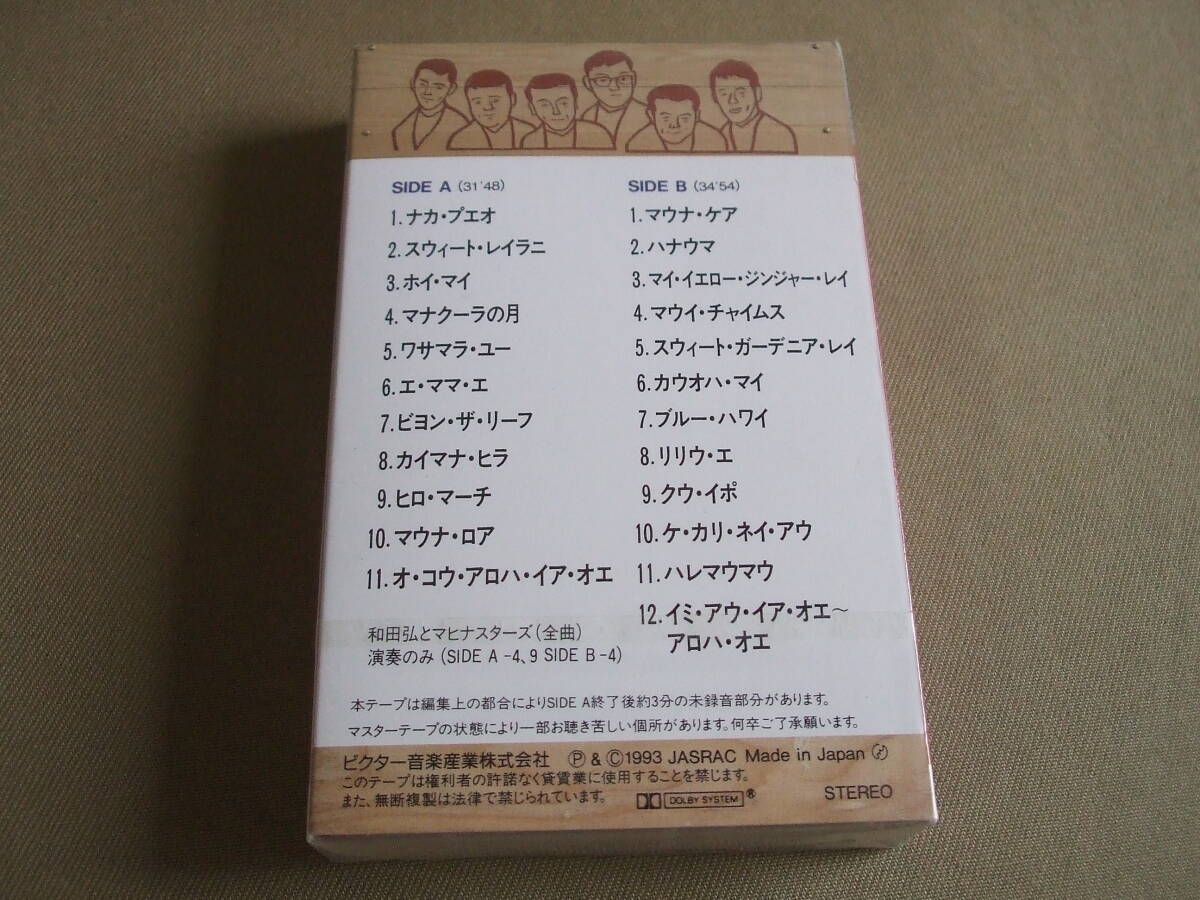 SIDE A (31'48)
1.ナカ・プエオ
2.スウィート・レイラニ
3.ホイ・マイ
4.マナクーラの月
5.ワサマラ・ユー
6.エ・ママ・エ
7.ビヨン・ザ・リーフ
8.カイマナ・ヒラ
9.ヒロ・マーチ
10.マウナ・ロア
11.オ・コウ・アロハ・イア・オエ
SIDE B (34'54)
1.マウナ・ケア
2.ハナウマ
3.マイ・イエロー・ジンジャー・レイ
4.マウイ・チャイムス
5.スウィート・ガーデニア・レイ
6.カウオハ・マイ
7.ブルー・ハワイ
8.リリウ・エ
9.クウ・イポ
10.ケ・カリ・ネイ・アウ
11.ハレマウマウ
12.イミ・アウ・イア・オエ～
アロハ・オエ
和田弘とマヒナスターズ(全曲)
演奏のみ (SIDE A -4、9 SIDE B -4)
本テープは編集上の都合によりSIDE A終了後約3分の未録音部分があります。
マスターテープの状態により一部お聴き苦しい個所があります。何卒ご了承願います。
ビクター音楽産業株式会社 Ⓟ & Ⓒ1993 JASRAC Made in Japan
このテープは権利者の許諾なく賃貸業に使用することを禁じます。
また、無断複製は法律で禁じられています。 DOLBY SYSTEM ® STEREO